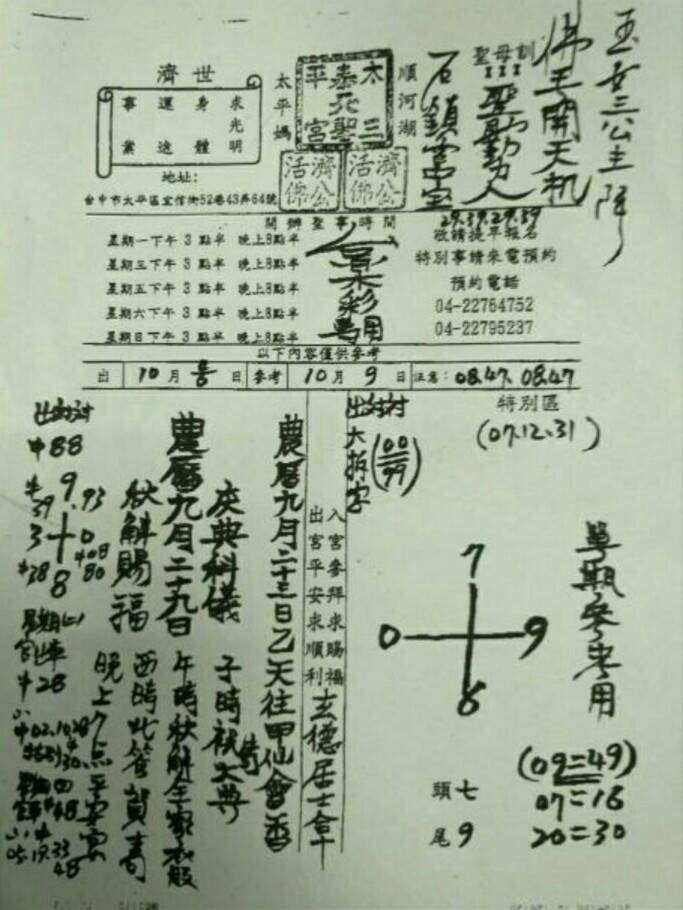 玉女三公主降
佛王開天机
聖母訓
聖動人
石鎮宮宝
順河湖
木三
泰元聖
平宮
太平媽
濟公活佛
濟公活佛
世濟
求光明
身體
運途
事業
地址:
台中市太平區宜信街52巷43弄64號
開辦聖事時間
星期一下午 3 點半 晚上8點半
星期三下午 3 點半 晚上8點半
星期五下午 3 點半 晚上8點半
星期六下午 3 點半 晚上8點半
星期日下午 3 點半 晚上8點半
29.39.29.39
敬請提早報名
特別事請來電預約
預約電話
04-22764752
04-22795237
以下內容僅供參考
出 10 月 8 日 參考 10 月 9 日 注意: 08.47. 08.47
特別區
(07.12.31)
單期參考用
7
0 9
8
(09=49)
頭 七 07=16
尾 9 20=30
大拆字
(00 99)
入宮參拜求賜福
出宮平安求順利
玄德居士拿
農曆九月二十三日乙天往甲仙會香
慶典科儀 子時祝大典
農曆九月二十九日 午時秋解全家衣般
秋解賜福 酉時北管賀壽
晚上7点平安宴
88
9.93
39
3 0
38
8
80
28
05.19.33
48